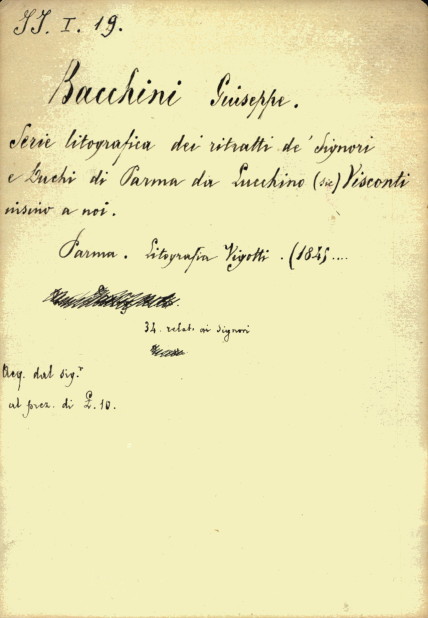 JJ. I. 19.
Bacchini Giuseppe.
Serie litografica dei ritratti de' Signori
e Duchi di Parma da Lucchino (sic) Visconti
insino a noi.
Parma. Litografia Vigotti. (184
34. relat. ai Signori
Acq. dal sig.r
al prez. di £. 10.